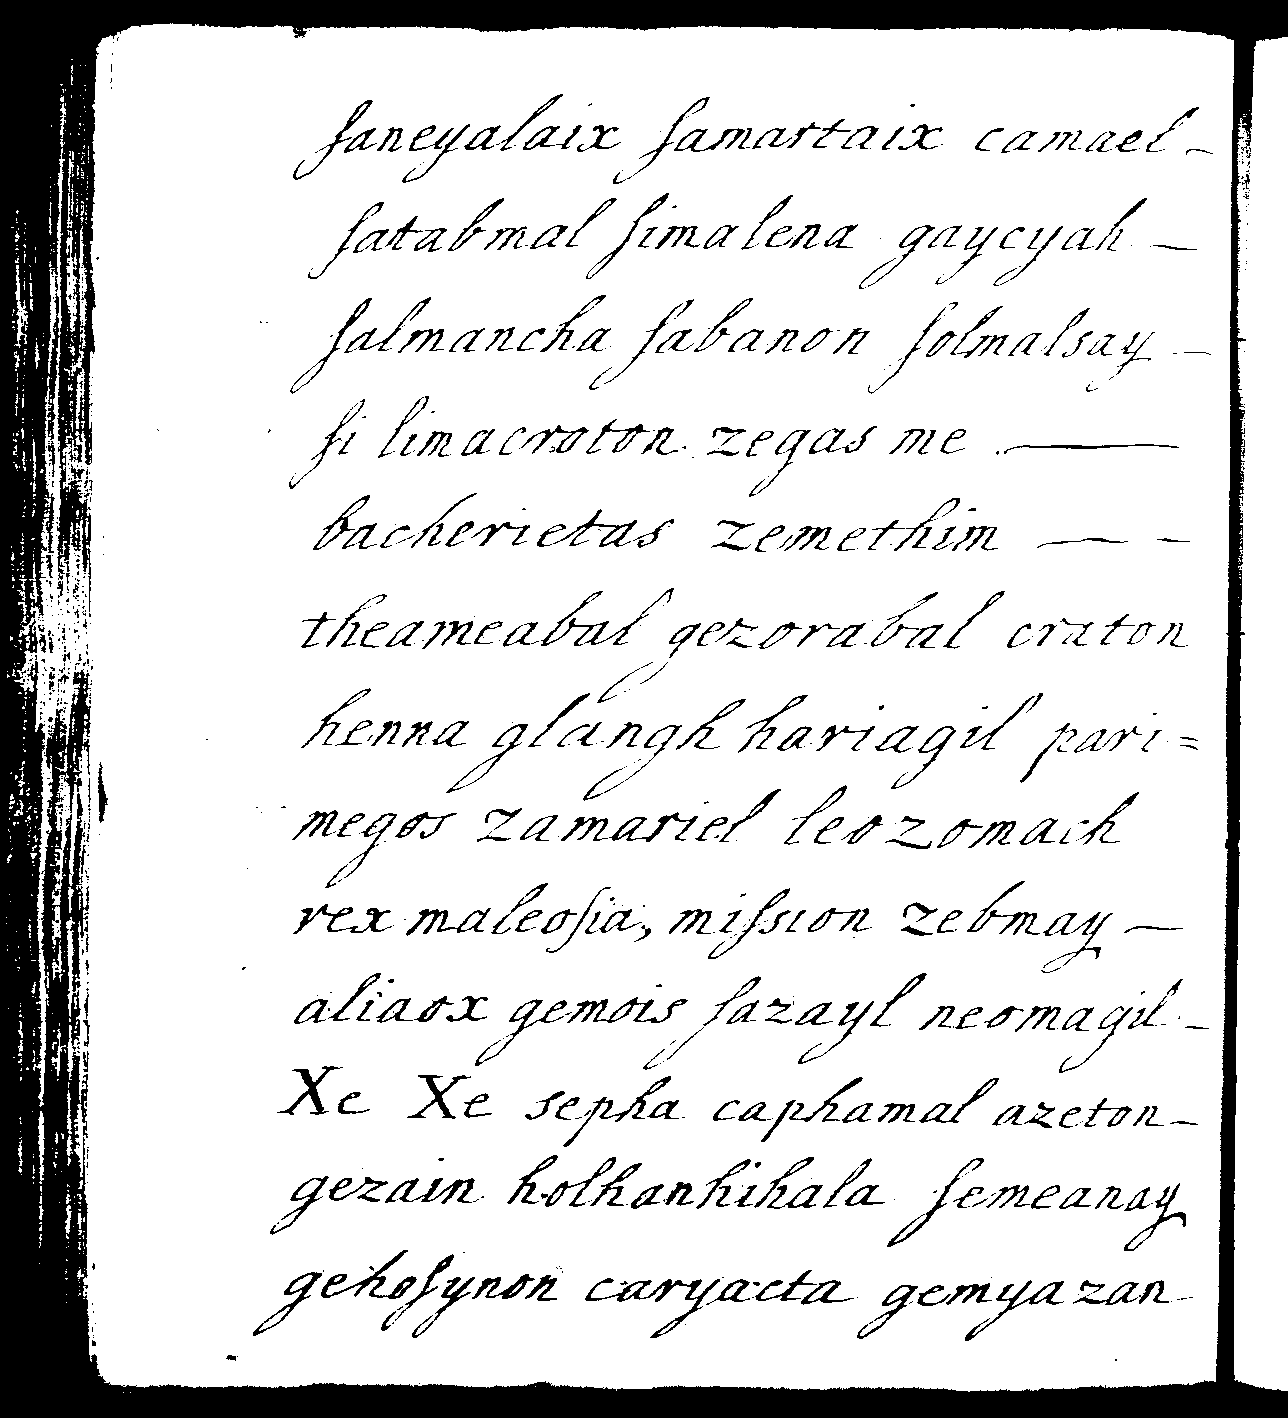 ſaneyalaix ſamartaix camael -
ſatabmal ſimalena gaycyah —
ſalmancha ſabanon ſolmalsay —
ſi limacroton zegas me . ——
bacherietas zemethim — -
theameabal gezorabal craton
henna glangh hariagil pari=
megos zamariel leozomach
rex maleoſia, miſsion zebmay —
aliaox gemois ſazayl neomagil -
Xe Xe sepha caphamal azeton -
gezain holhanhihala ſemeanay
gehoſynon caryacta gemyazan